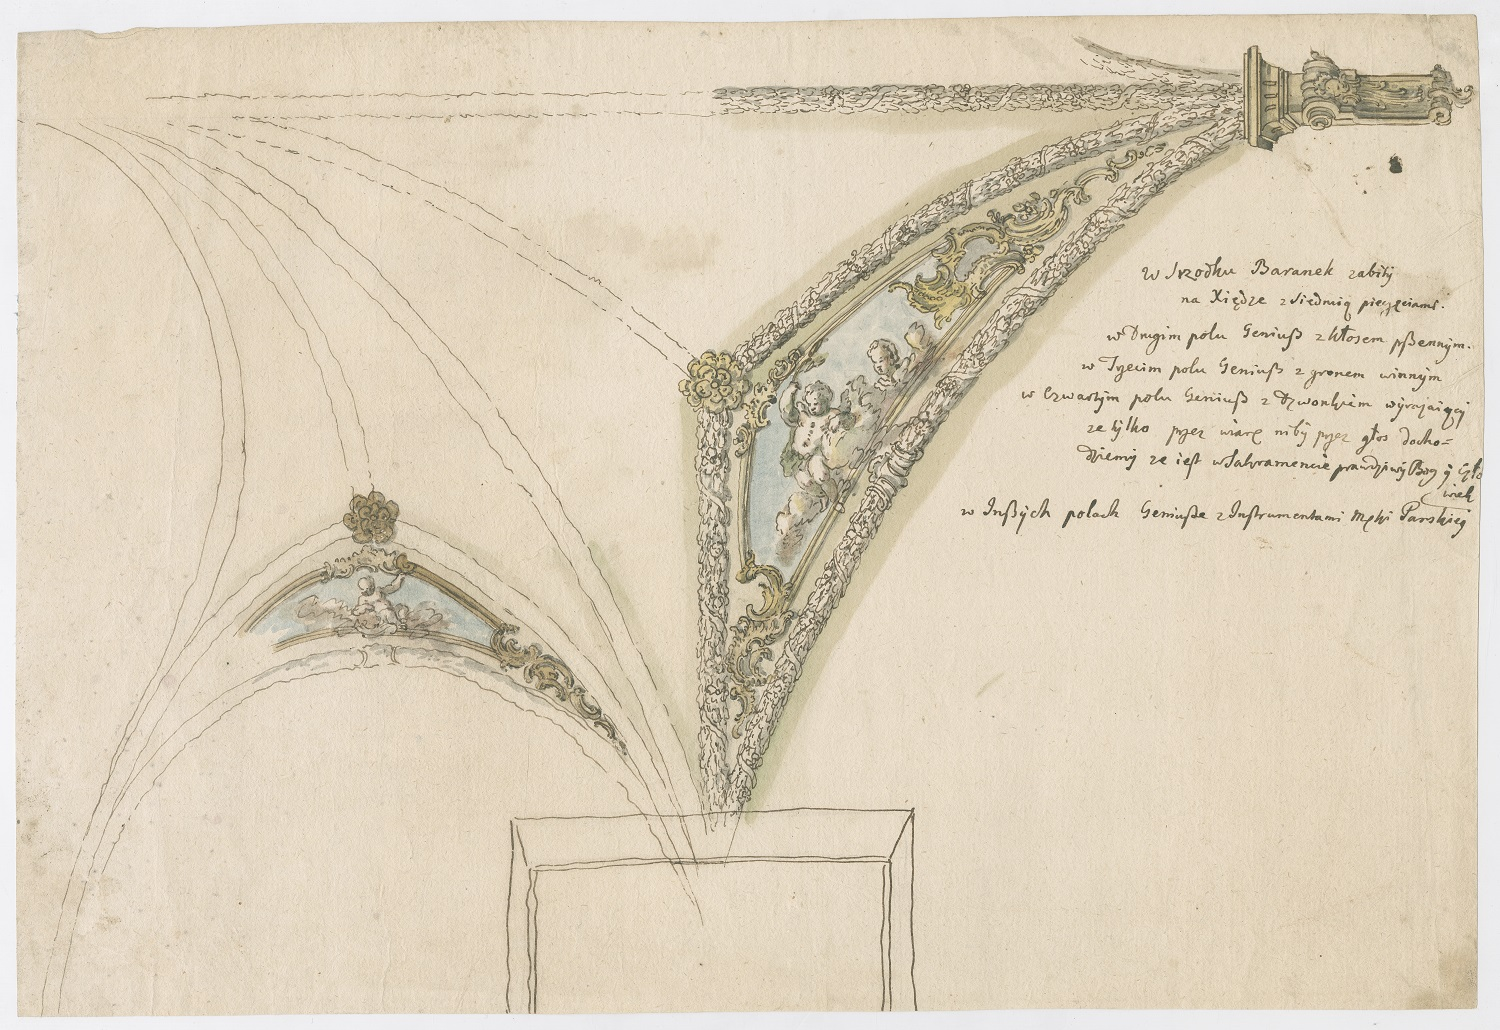 w srzodku Baranek zabity
na Xiędze z siedmią pieczęciami.
w Drugim polu Geniuß z kłosem pßennym.
w Trzecim polu Geniuß z gronem winnym
w Czwartym polu Geniuß z Dzwonkiem wyrażaiący
ze tylko przez wiarę niby przez głos docho=
dziemy ze iest w Sakramencie prawdziwy Bog y czło
wiek
w Inßych polach Geniuße z Instrumentami Męki Panskiey